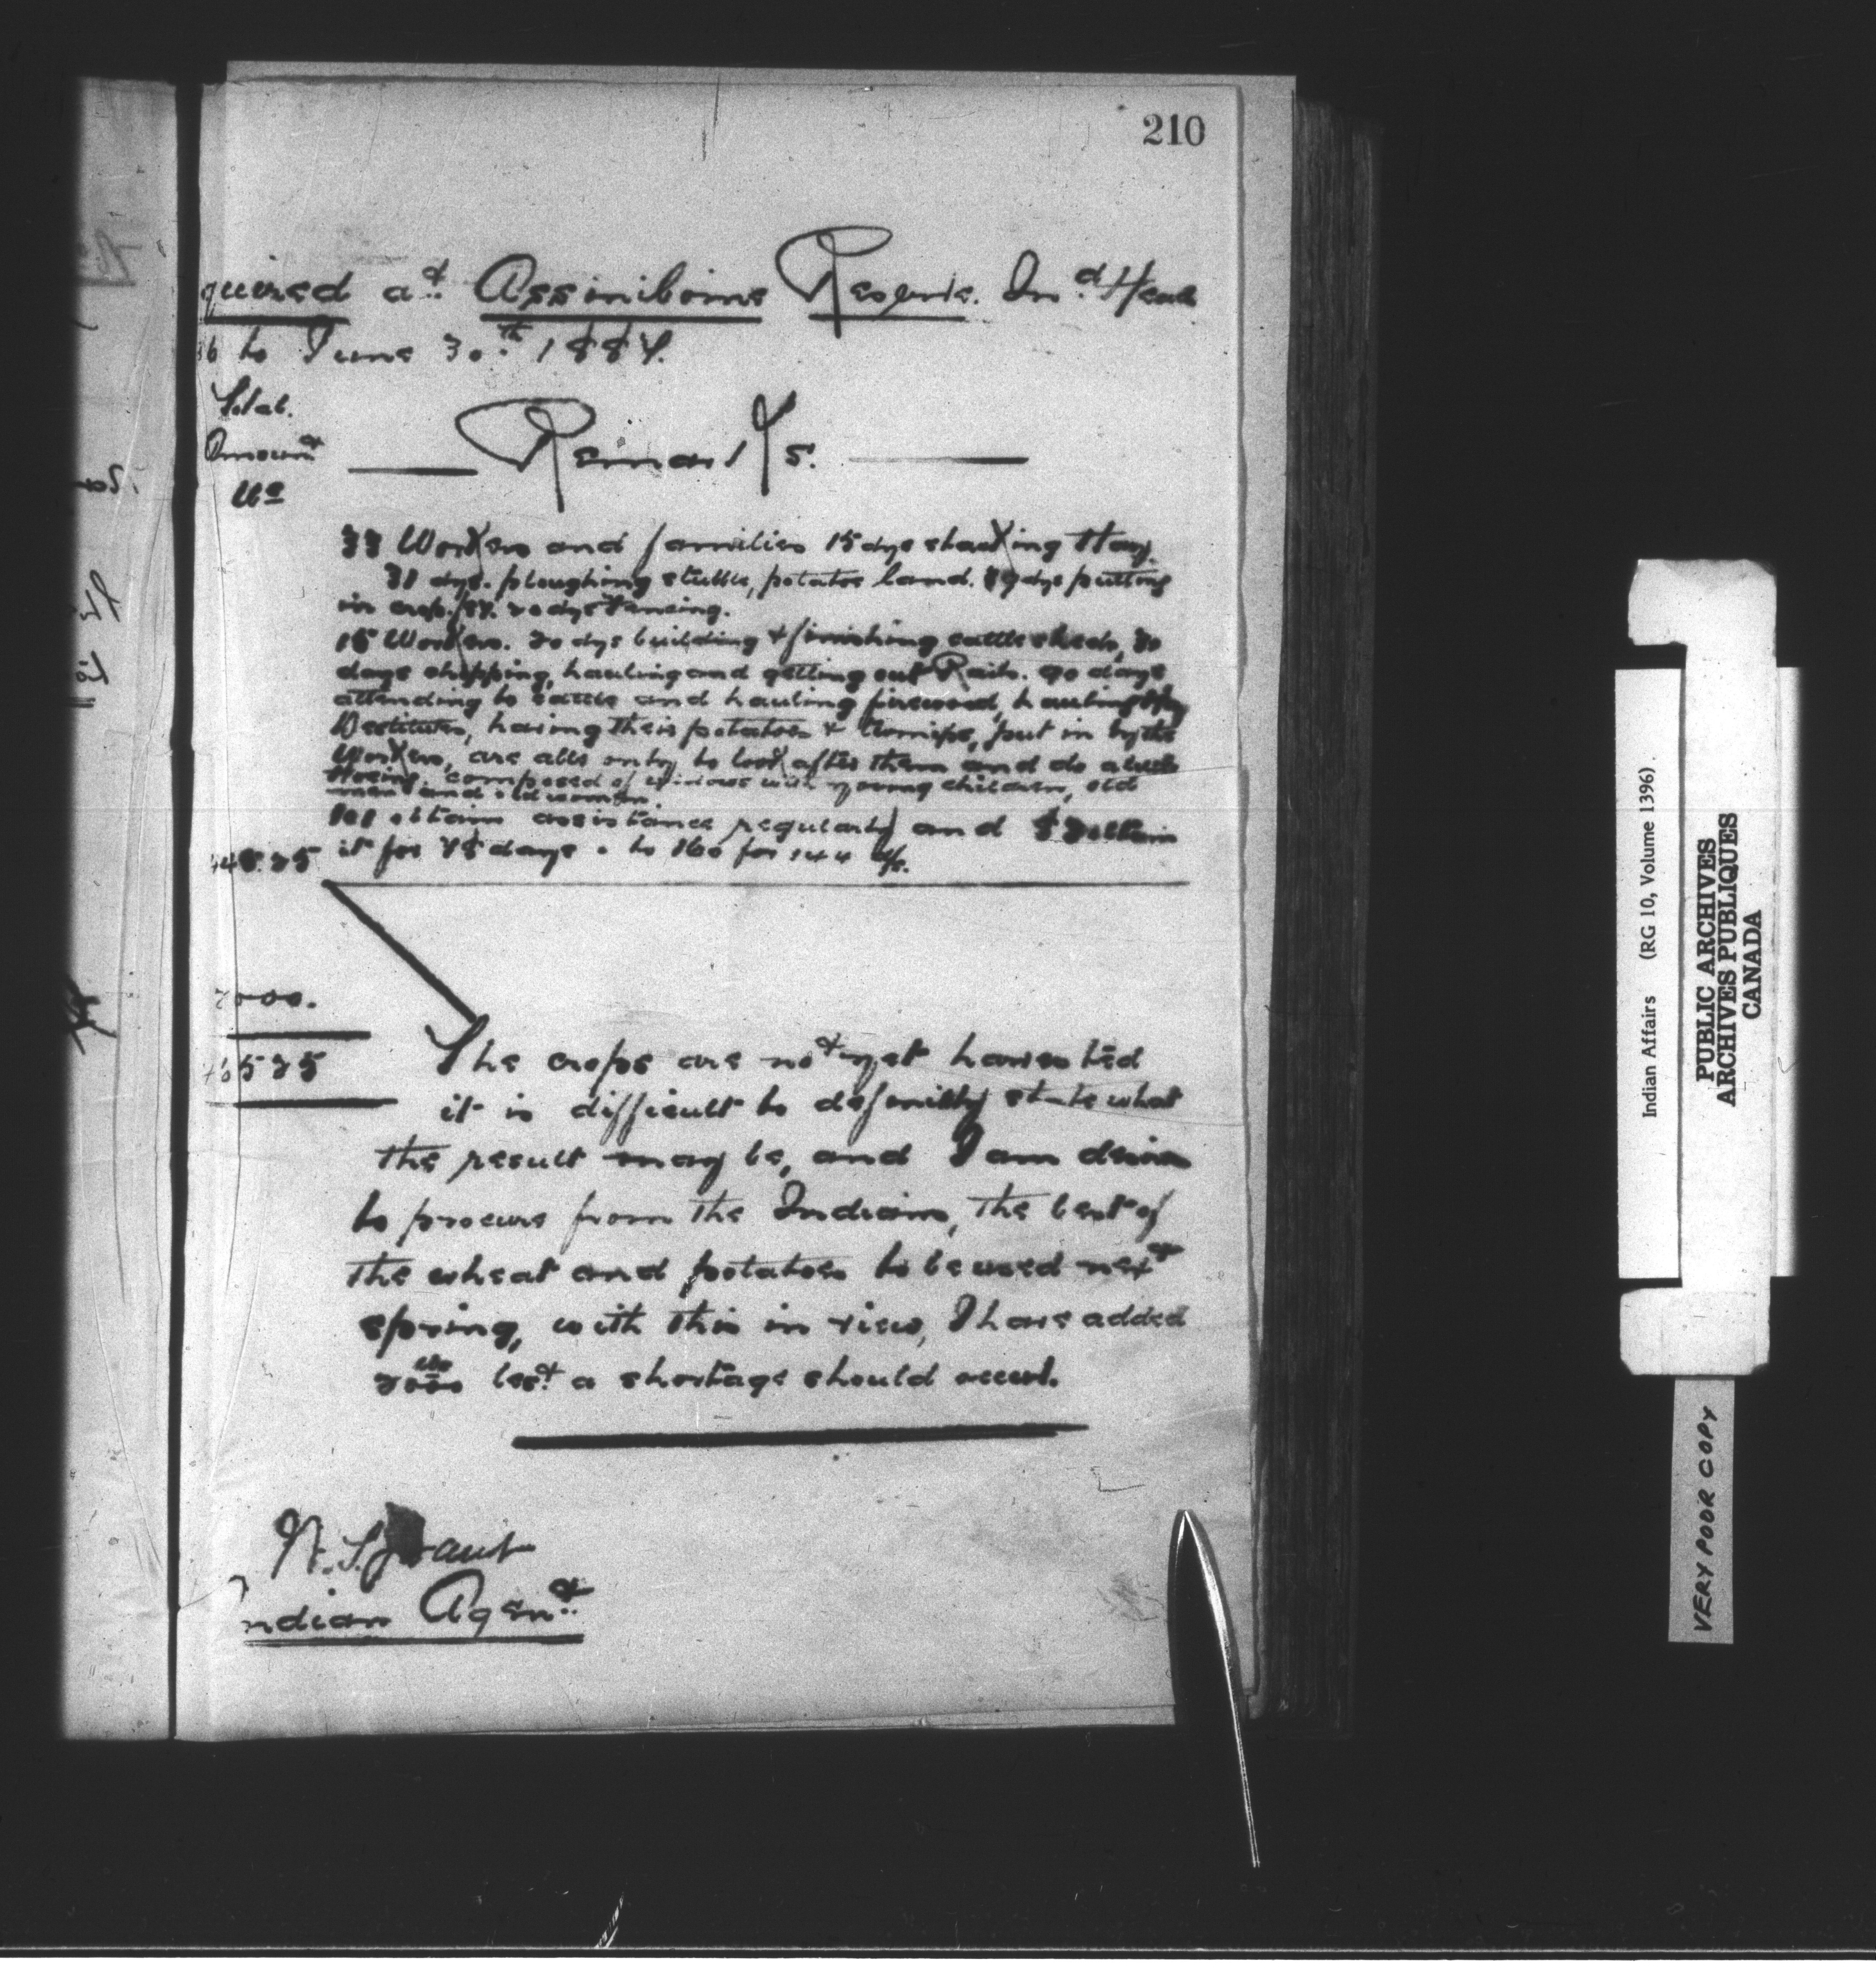 210
quired at Assiniboine Reserve. Ind Head
86 to June 30th 1887.
Total.
Amount
lbs
Remarks.
33 Workers and families 15 dys stacking Hay.
31 dys. ploughing stubble, potatoe land. 39 dys putting
in crop /87. 20 dys Fencing.
15 Workers. 20 dys building & finishing cattle sheds, 30
days chopping, hauling and getting out Rails. 90 days
attending to cattle and hauling firewood, hauling Hay
Destitutes, having their potatoes & turnips, put in by the
Workers, are able only to look after them and do a little
Hoeing. composed of widows with young children, old
men and old women.
101 obtain assistance regularly and obtain
it for days. to 160 for 144 d/s.
The crops are not yet harvested
2000.
it is difficult to definitly state what
the result may be, and I am desirous
to procure from the Indians, the best of
the wheat and potatoes to be used next
spring, with this in view, I have added
2000 lbs lest a shortage should occur.
W. S. Grant
Indian Agent
Indian Affairs (RG 10, Volume 1396)
PUBLIC ARCHIVES
ARCHIVES PUBLIQUES
CANADA
VERY POOR COPY